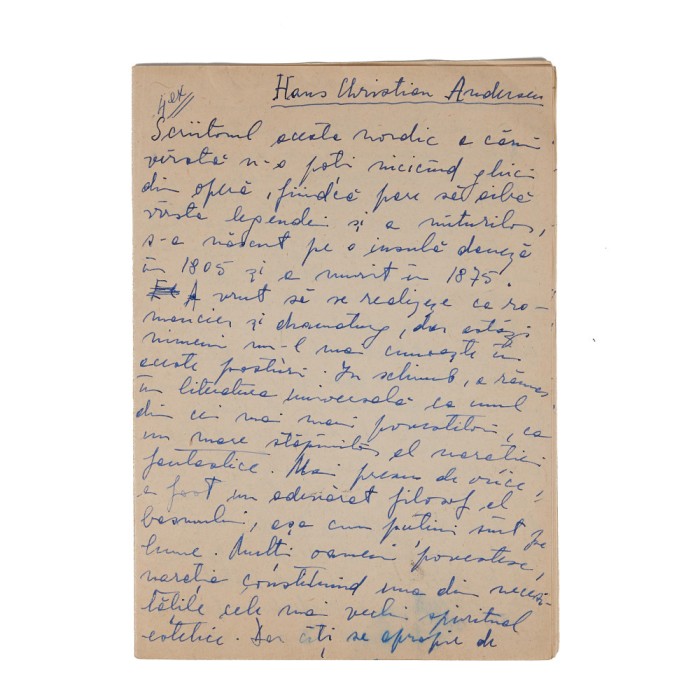 Hans Christian Andersen
4 ex
Scriitorul acesta nordic a cărui
vîrstă n-o poți nicicînd ghici
din operă, fiindcă pare să aibă
vîrsta legendei și a miturilor,
s-a născut pe o insulă daneză
în 1805 și a murit în 1875.
A vrut să se realizeze ca ro-
mancier și dramaturg, dar astăzi
nimeni nu-l mai cunoaște în
aceste posturi. În schimb, a rămas
în literatura universală ca unul
din cei mai mari povestitori, ca
un mare stăpînitor al narației
fantastice. Mai presus de orice,
a fost un adevărat filosof al
basmului, așa cum puțini sînt pe
lume. Mulți oameni povestesc,
narația constituind una din necesi-
tățile cele mai vechi spiritual
estetice. Dar cîți se apropie de